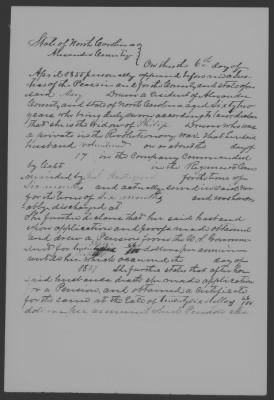 State of North Carolina
Alexander County
On this the 6th day of
April 1855 personally appeared before me a Jus-
tice of the Peace in and for the County and state afore
said Mary Drum a resident of Alexander
County and state of North Carolina aged Sixty two
years who being duly sworn according to Law declares
That she is the Widow of Philip Drum who was
a private in the Revolutionary war That her said
husband volunteered on or about the day of
17 in the Company Commanded
by Capt in the Regiment Com
manded by Col for the term of
Six months and actually served in said war
for the term of Six months and was honor
ably discharged at
She further declares that her said husband
upon application and proof made obtained
and drew a Pension from the U.S. Govern
ment for dollars per annum
until his which occurred the day of
18 She further states that after her
said husband's death she made application
for a Pension, and obtained a Certificate
for the same at the Rate of Twenty six dollars
dols per annum